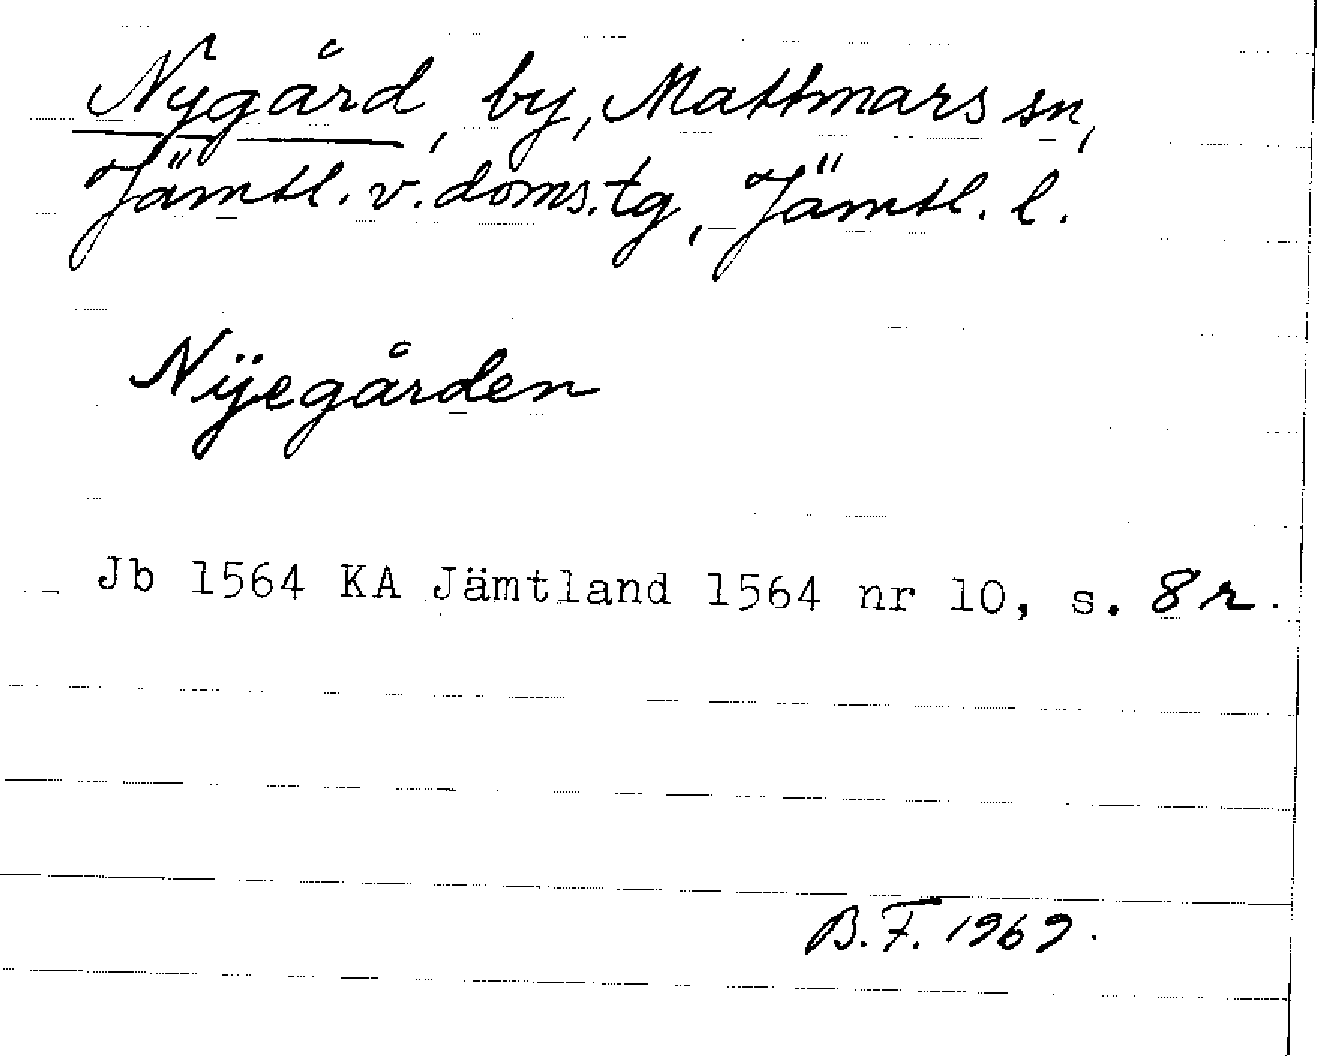 Nygård, by, Mattmars sn,
Jämtl. v. doms.tg, Jämtl. l.
Nÿegården
Jb 1564 KA Jämtland 1564 nr 10, s. 8 r.
B.F. 1969.